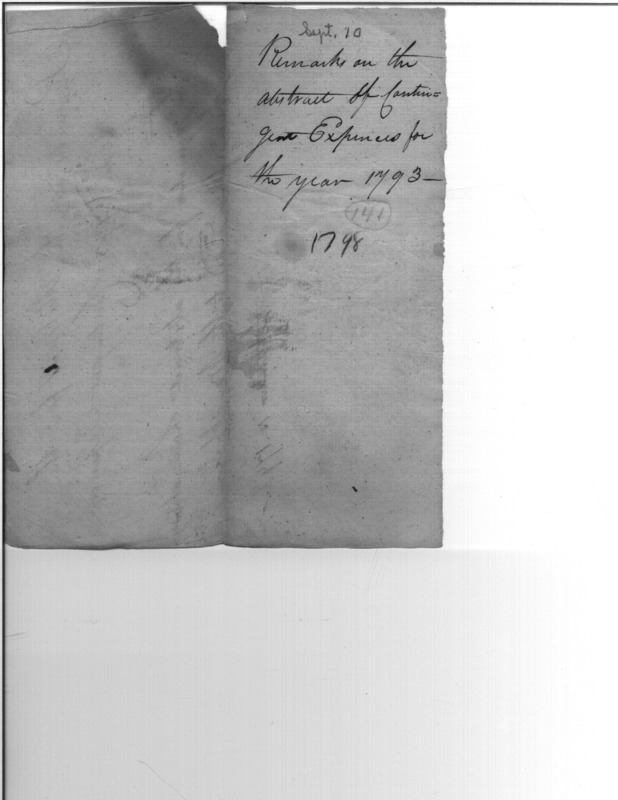 Sept. 10
Remarks on the
abstract of Contin=
gent Expences for
the year 1793—
141
1798